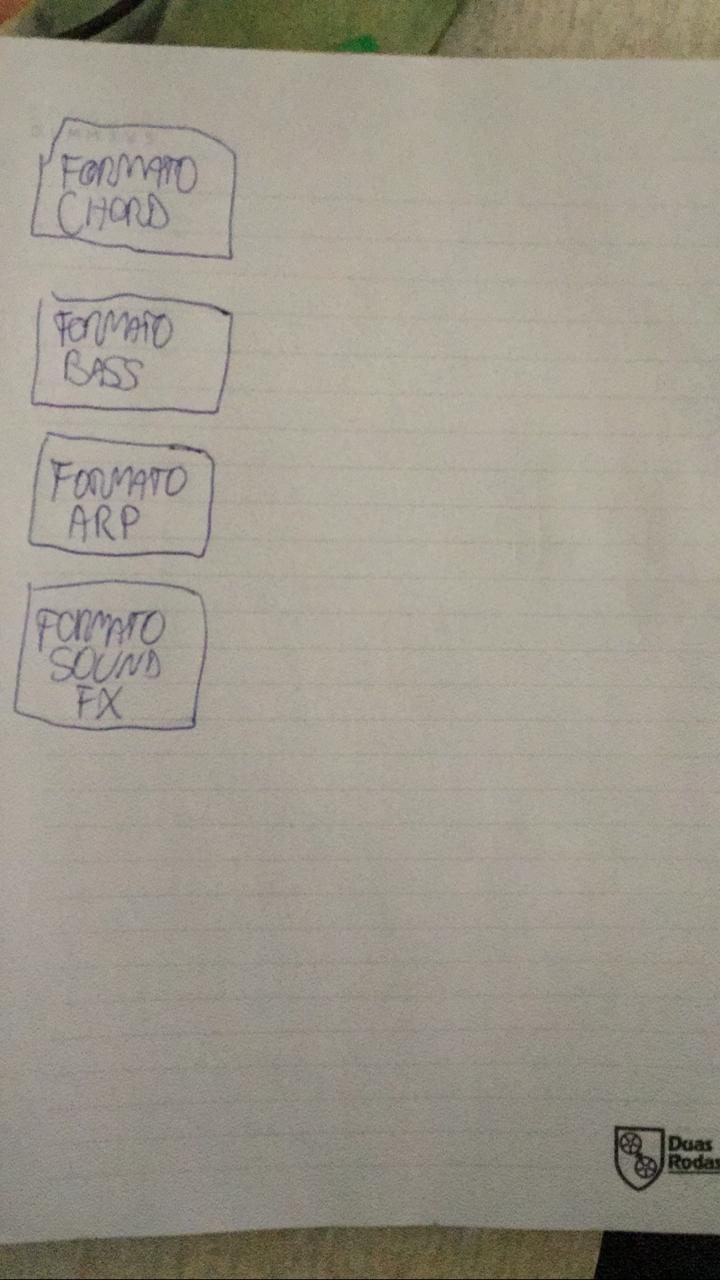 FORMATO
CHORD
FORMATO
BASS
FORMATO
ARP
FORMATO
SOUND
FX
Duas
Rodas